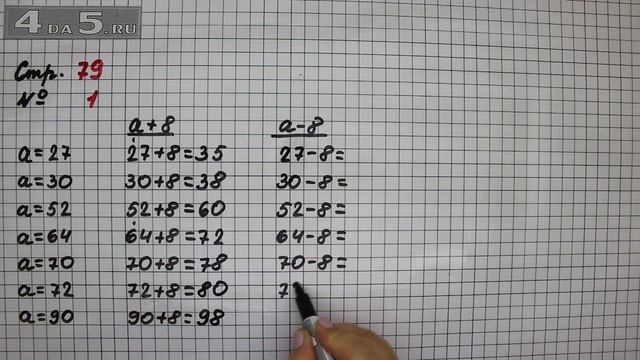 4 DA 5.RU
Стр. 79
№ 1
a+8 a-8
a=27 27+8=35 27-8=
a=30 30+8=38 30-8=
a=52 52+8=60 52-8=
a=64 64+8=72 64-8=
a=70 70+8=78 70-8=
a=72 72+8=80 7
a=90 90+8=98